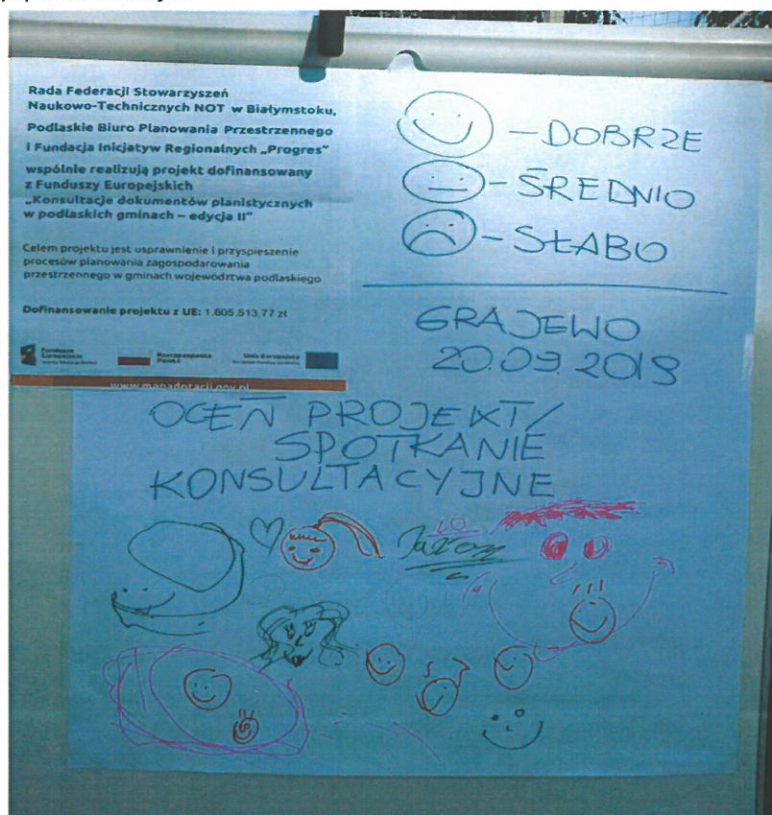 Rada Federacji Stowarzyszeń
Naukowo-Technicznych NOT w Białymstoku,
Podlaskie Biuro Planowania Przestrzennego
i Fundacja Inicjatyw Regionalnych „Progres”
wspólnie realizują projekt dofinansowany
z Funduszy Europejskich
„Konsultacje dokumentów planistycznych
w podlaskich gminach – edycja II”
Celem projektu jest usprawnienie i przyspieszenie
procesów planowania zagospodarowania
przestrzennego w gminach województwa podlaskiego
Dofinansowanie projektu z UE: 1.605.513,77 zł
Fundusze
Europejskie
Rzeczpospolita
Polska
Unia Europejska
www.mapadotacji.gov.pl
– DOBRZE
– ŚREDNIO
– SŁABO
GRAJEWO
20.09.2019
OCEŃ PROJEKT/
SPOTKANIE
KONSULTACYJNE